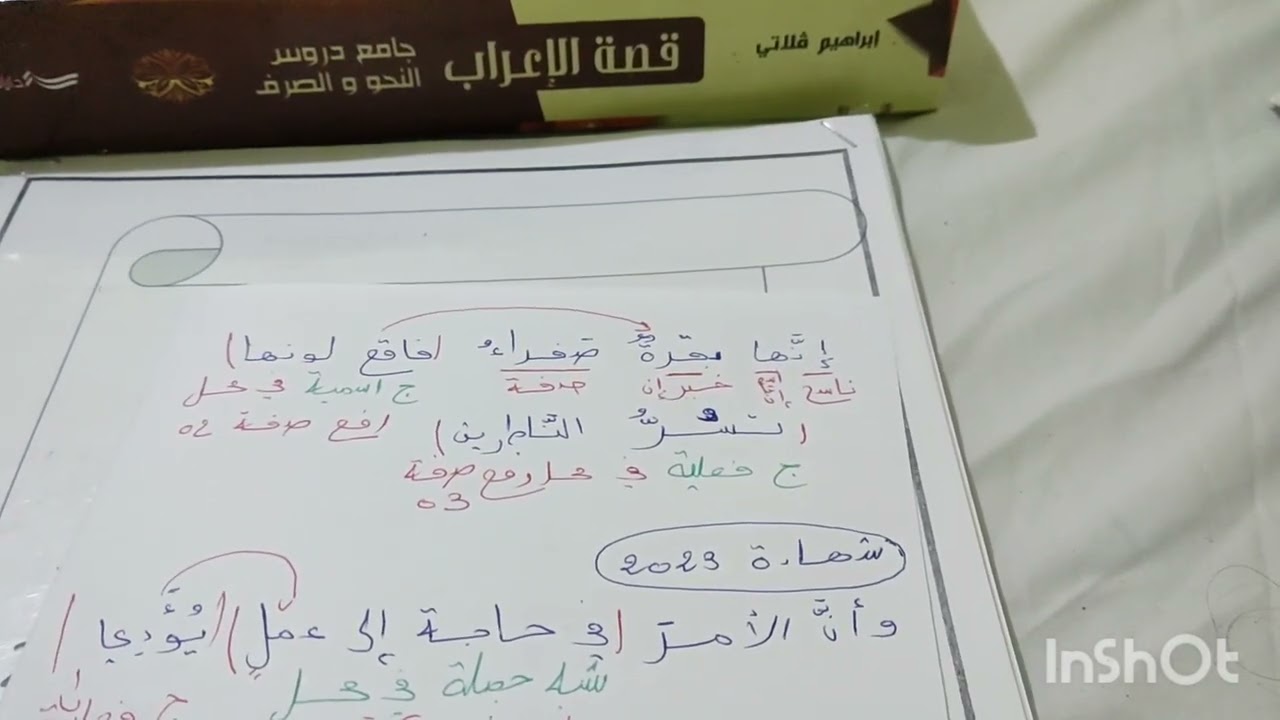 ابراهيم قلاتي
قصة الإعراب
جامع دروس
النحو و الصرف
إنَّها بقرةٌ صفراءُ (فاقع لونها)
ناسخ إنّ خبر إن صفة ج اسمية في محل
رفع صفة 02
(تسُرُّ النَّاظرين)
ج فعلية في محل رفع صفة
03
شهادة 2023
وأنَّ الأمرَ (في حاجة إلى عملٍ) (يُؤَدي)
شبه جملة في محل
InShOt